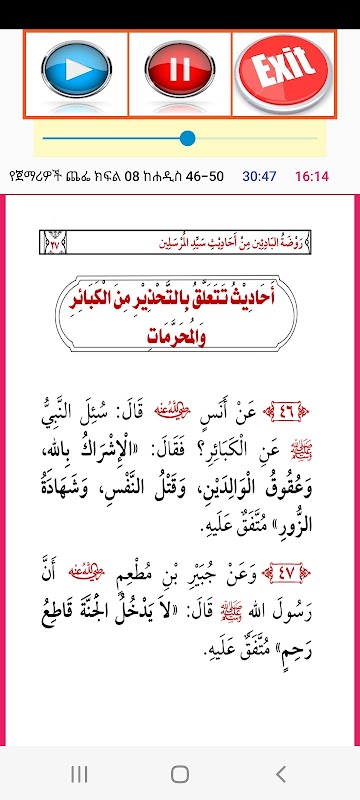 Exit
የጀማሪዎች ጨፌ ክፍል 08 ከሐዲስ 46–50 30:47 16:14
رَوْضَةُ البَادِئِين مِنْ أَحَادِيْثِ سَيِّدِ المُرْسَلِين ٢٧
أَحَادِيْثُ تَتَعَلَّقُ بِالتَّحْذِيْرِ مِنَ الْكَبَائِرِ
وَالْمُحَرَّمَاتِ
﴿٤٦﴾ عَنْ أَنَسٍ رضي الله عنه قَالَ: سُئِلَ النَّبِيُّ
ﷺ عَنِ الْكَبَائِرِ؟ فَقَالَ: «الْإِشْرَاكُ بِالله،
وَعُقُوقُ الْوَالِدَيْنِ، وَقَتْلُ النَّفْسِ، وَشَهَادَةُ
الزُّورِ» مُتَّفَقٌ عَلَيهِ.
﴿٤٧﴾ وَعَنْ جُبَيْرِ بْنِ مُطْعِمٍ رضي الله عنه أَنَّ
رَسُولَ الله ﷺ قَالَ: «لاَ يَدْخُلُ الْجَنَّةَ قَاطِعُ
رَحِمٍ» مُتَّفَقٌ عَلَيهِ.